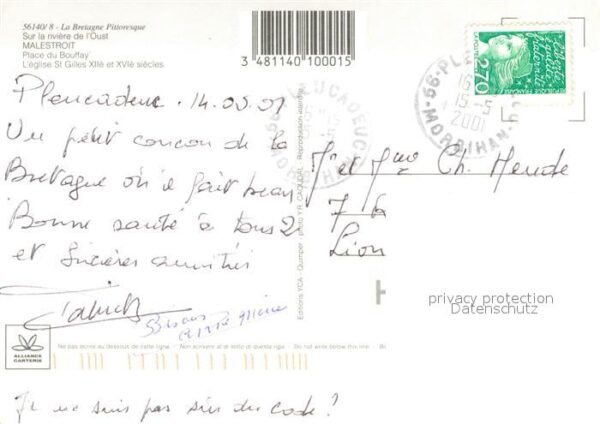 56140/8 - La Bretagne Pittoresque
Sur la rivière de l'Oust
MALESTROIT
Place du Bouffay
L'église St Gilles XIIè et XVIè siècles
3 481140 100015
LIBERTÉ égalité fraternité
RÉPUBLIQUE FRANÇAISE
2,70
56-PL
15-5
2001
MORBIHAN
Pleucadeuc. 14.05.01
Un petit coucou de la
Bretagne où il fait beau
Bonne santé à tous 2
et sincères amitiés
Bisous
Mr et Mme Ch.
76
Lion
Editions YCA - Quimper - photo Y.R. CAOUDAL Reproduction interdite
privacy protection
Datenschutz
ALLIANCE
CARTERIE
Ne pas écrire au dessous de cette ligne - Non scrivere al di sotto di questa riga - Do not write below this line - Bi
Je ne suis pas sûr du code ?